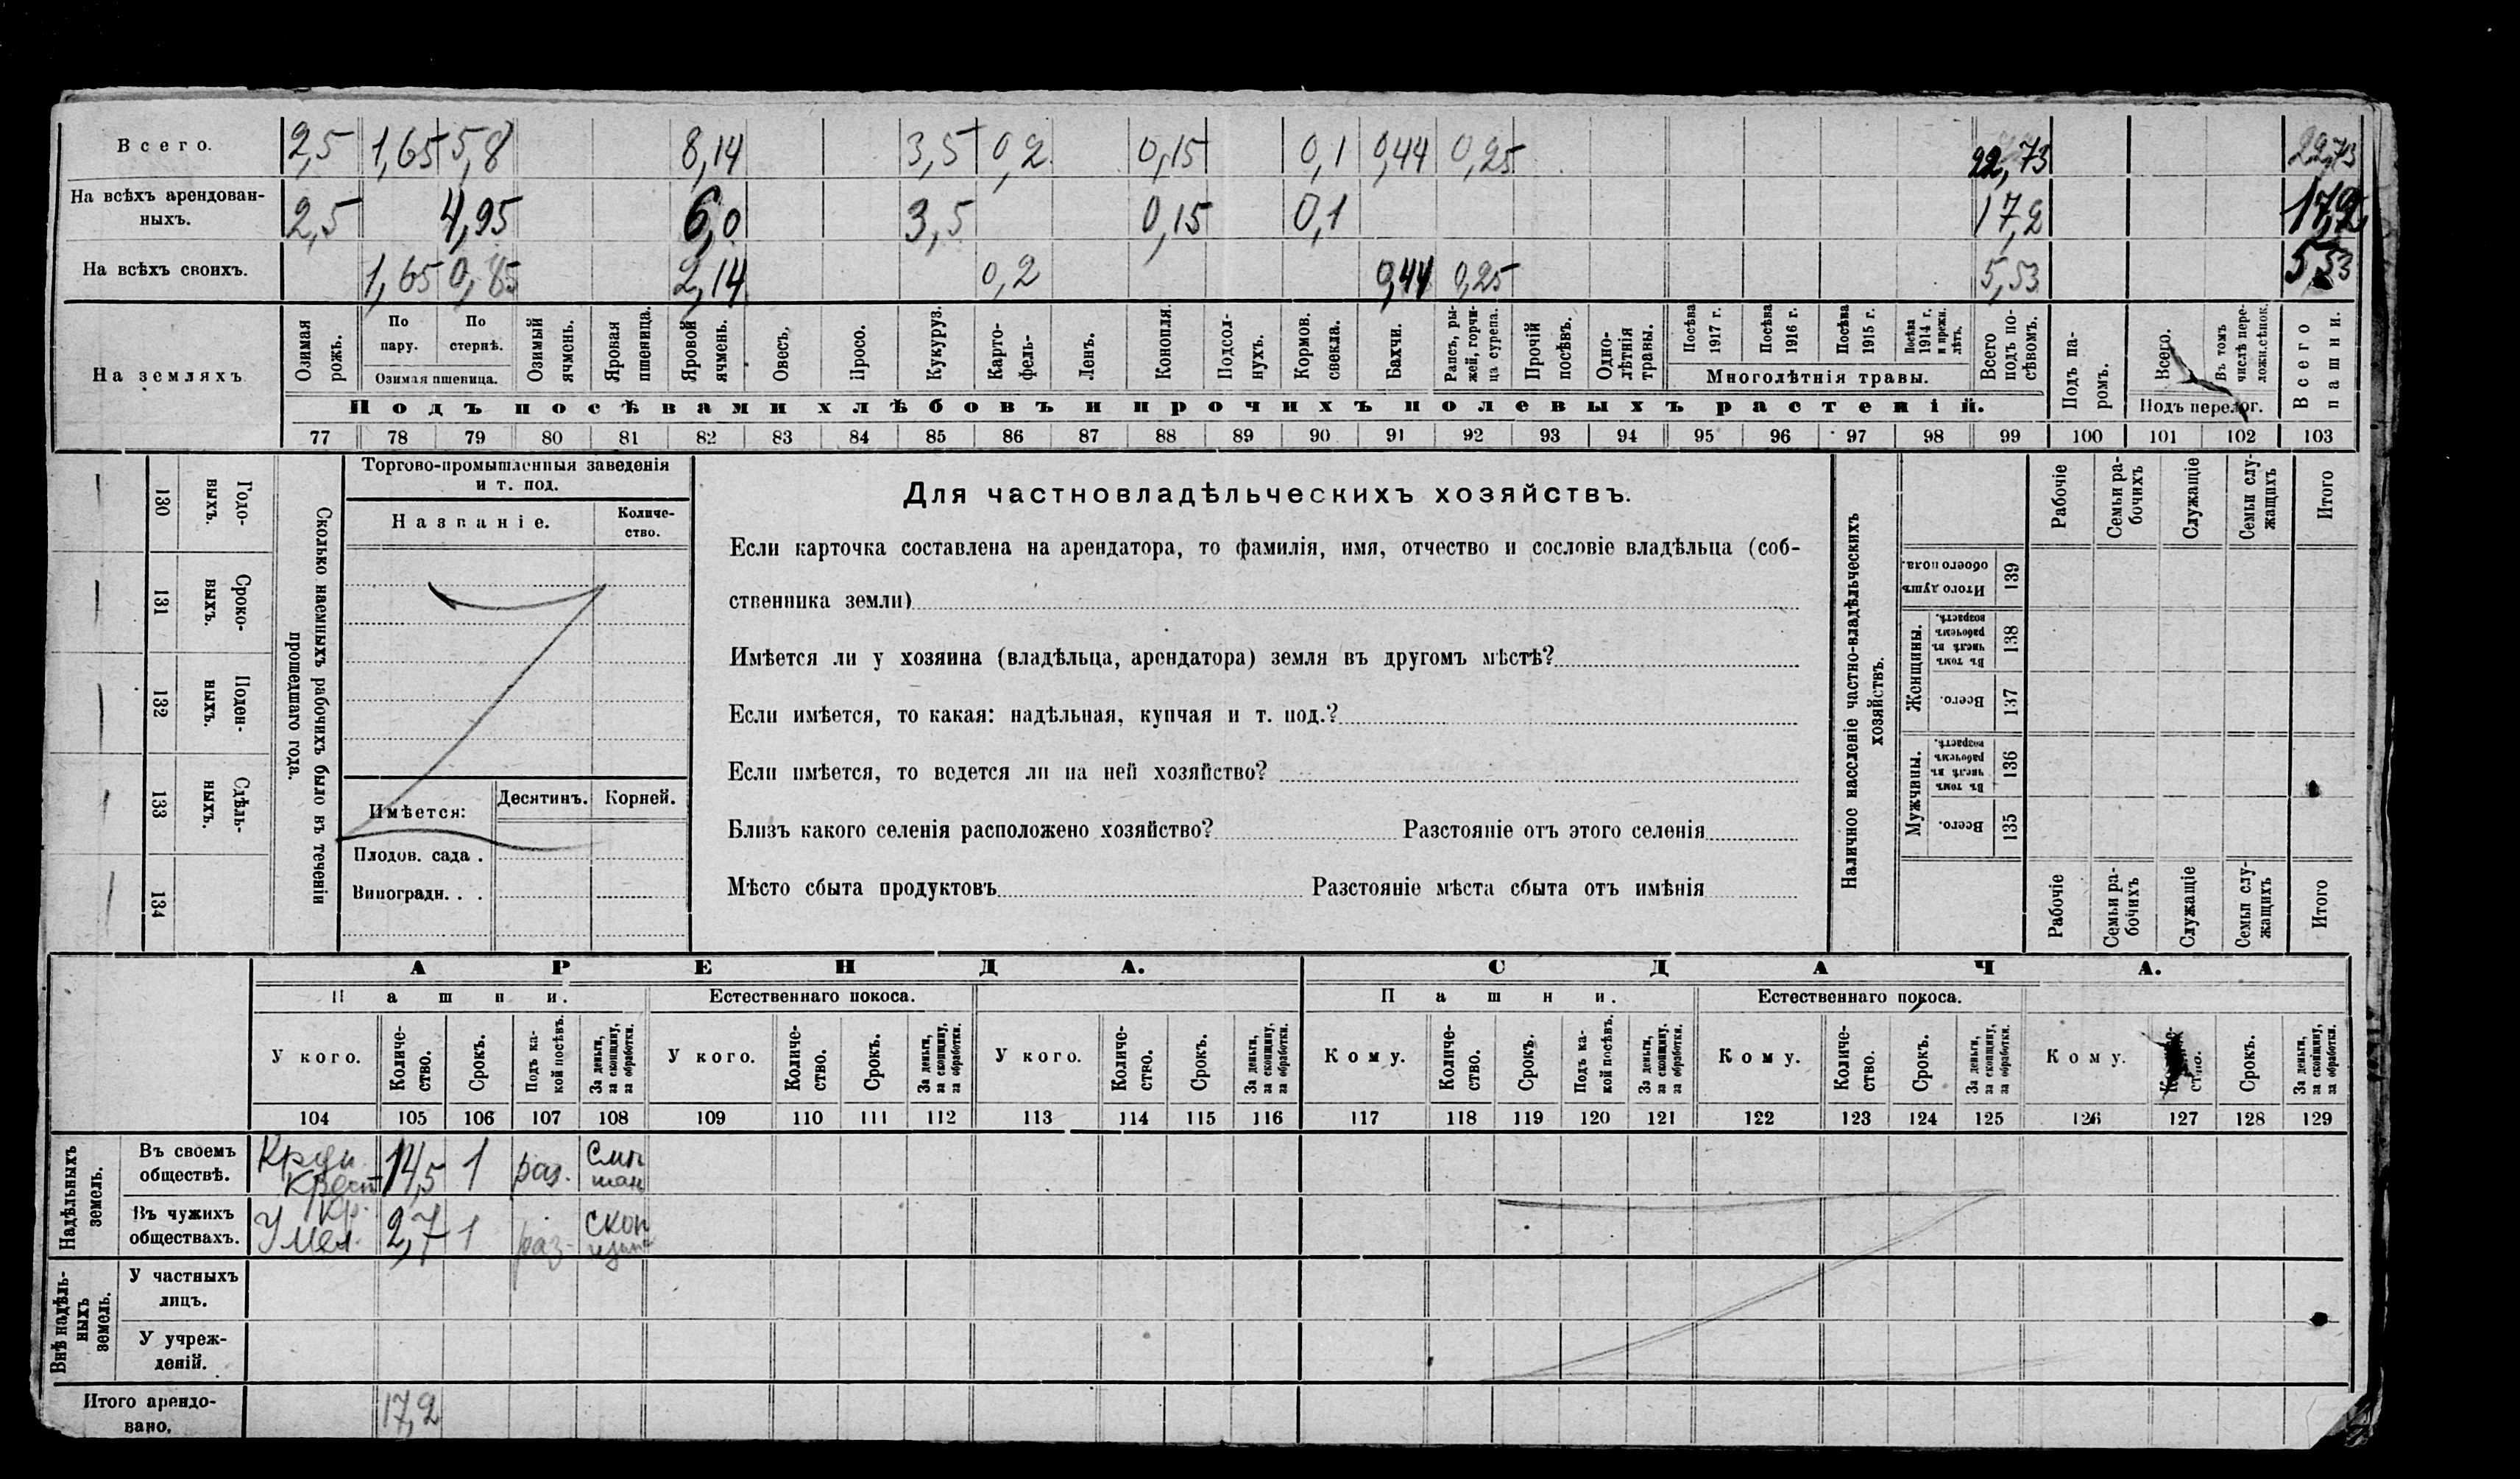 Всего. 2,5 1,65 5,8 8,14 3,5 0,2 0,15 0,1 0,44 0,25 22,73 22,73
На всѣхъ арендован-
ныхъ. 2,5 4,95 6,0 3,5 0,15 0,1 17,2 17,2
На всѣхъ своихъ. 1,65 0,85 2,14 0,2 0,44 0,25 5,53 5,53
На земляхъ
Озимая рожь.
По пару.
По стернѣ.
Озимая пшеница.
Озимый ячмень.
Яровая пшеница.
Яровой ячмень.
Овесъ.
Просо.
Кукуруз.
Карто-
фель-
Ленъ.
Конопля.
Подсол-
нухъ.
Кормов.
свекла.
Бахчи.
Рапсъ, ры-
жей, горчи-
ца сурепа.
Прочій
посѣвъ.
Одно-
лѣтнія
травы.
Посѣва
1917 г.
Посѣва
1916 г.
Посѣва
1915 г.
Посѣва
1914 г.
и прежн.
лѣтъ.
Многолѣтнія травы.
Всего
подъ по-
сѣвомъ.
Подъ посѣвами хлѣбовъ и прочихъ полевыхъ растеній.
Подъ па-
ромъ.
Всего.
Въ томъ
числѣ пере-
ложн.сѣнок.
Подъ перелог.
Всего
пашни.
77 78 79 80 81 82 83 84 85 86 87 88 89 90 91 92 93 94 95 96 97 98 99 100 101 102 103
130
Годо-
выхъ.
131
Сроко-
выхъ.
132
Поден-
ныхъ.
133
Сдѣль-
ныхъ.
134
Сколько наемныхъ рабочихъ было въ теченіи
прошедшаго года.
Торгово-промышленныя заведенія
и т. под.
Названіе.
Количе-
ство.
Имѣется:
Десятинъ.
Корней.
Плодов. сада .
Виноградн. . .
Для частновладѣльческихъ хозяйствъ.
Если карточка составлена на арендатора, то фамилія, имя, отчество и сословіе владѣльца (соб-
ственника земли)
Имѣется ли у хозяина (владѣльца, арендатора) земля въ другомъ мѣстѣ?
Если имѣется, то какая: надѣльная, купчая и т. под.?
Если имѣется, то ведется ли на ней хозяйство?
Близъ какого селенія расположено хозяйство? Разстояніе отъ этого селенія
Мѣсто сбыта продуктовъ Разстояніе мѣста сбыта отъ имѣнія
Наличное населеніе частно-владѣльческихъ
хозяйствъ.
Рабочіе
Семьи ра-
бочихъ
Служащіе
Семьи слу-
жащихъ
Итого
Итого душъ
обоего пола.
139
Женщины.
Въ томъ
числѣ въ
рабочемъ
возрастѣ.
138
Всего.
137
Мужчины.
Въ томъ
числѣ въ
рабочемъ
возрастѣ.
136
Всего.
135
Рабочіе
Семьи ра-
бочихъ
Служащіе
Семьи слу-
жащихъ
Итого
АРЕНДА. СДАЧА.
Пашни. Естественнаго покоса. Пашни. Естественнаго покоса.
У кого.
Количе-
ство.
Срокъ.
Подъ ка-
кой посѣвъ.
За деньги,
за скопщину,
за обработки.
У кого.
Количе-
ство.
Срокъ.
За деньги,
за скопщину,
за обработки.
У кого.
Количе-
ство.
Срокъ.
За деньги,
за скопщину,
за обработки.
Кому.
Количе-
ство.
Срокъ.
Подъ ка-
кой посѣвъ.
За деньги,
за скопщину,
за обработки.
Кому.
Количе-
ство.
Срокъ.
За деньги,
за скопщину,
за обработки.
Кому.
ство.
Срокъ.
За деньги,
за скопщину,
за обработки.
104 105 106 107 108 109 110 111 112 113 114 115 116 117 118 119 120 121 122 123 124 125 126 127 128 129
Надѣльныхъ
земель.
Въ своемъ
обществѣ. 14,5 1 раз.
Въ чужихъ
обществахъ. 2,7 1 раз.
Внѣ надѣль-
ныхъ
земель.
У частныхъ
лицъ.
У учреж-
деній.
Итого арендо-
вано. 17,2